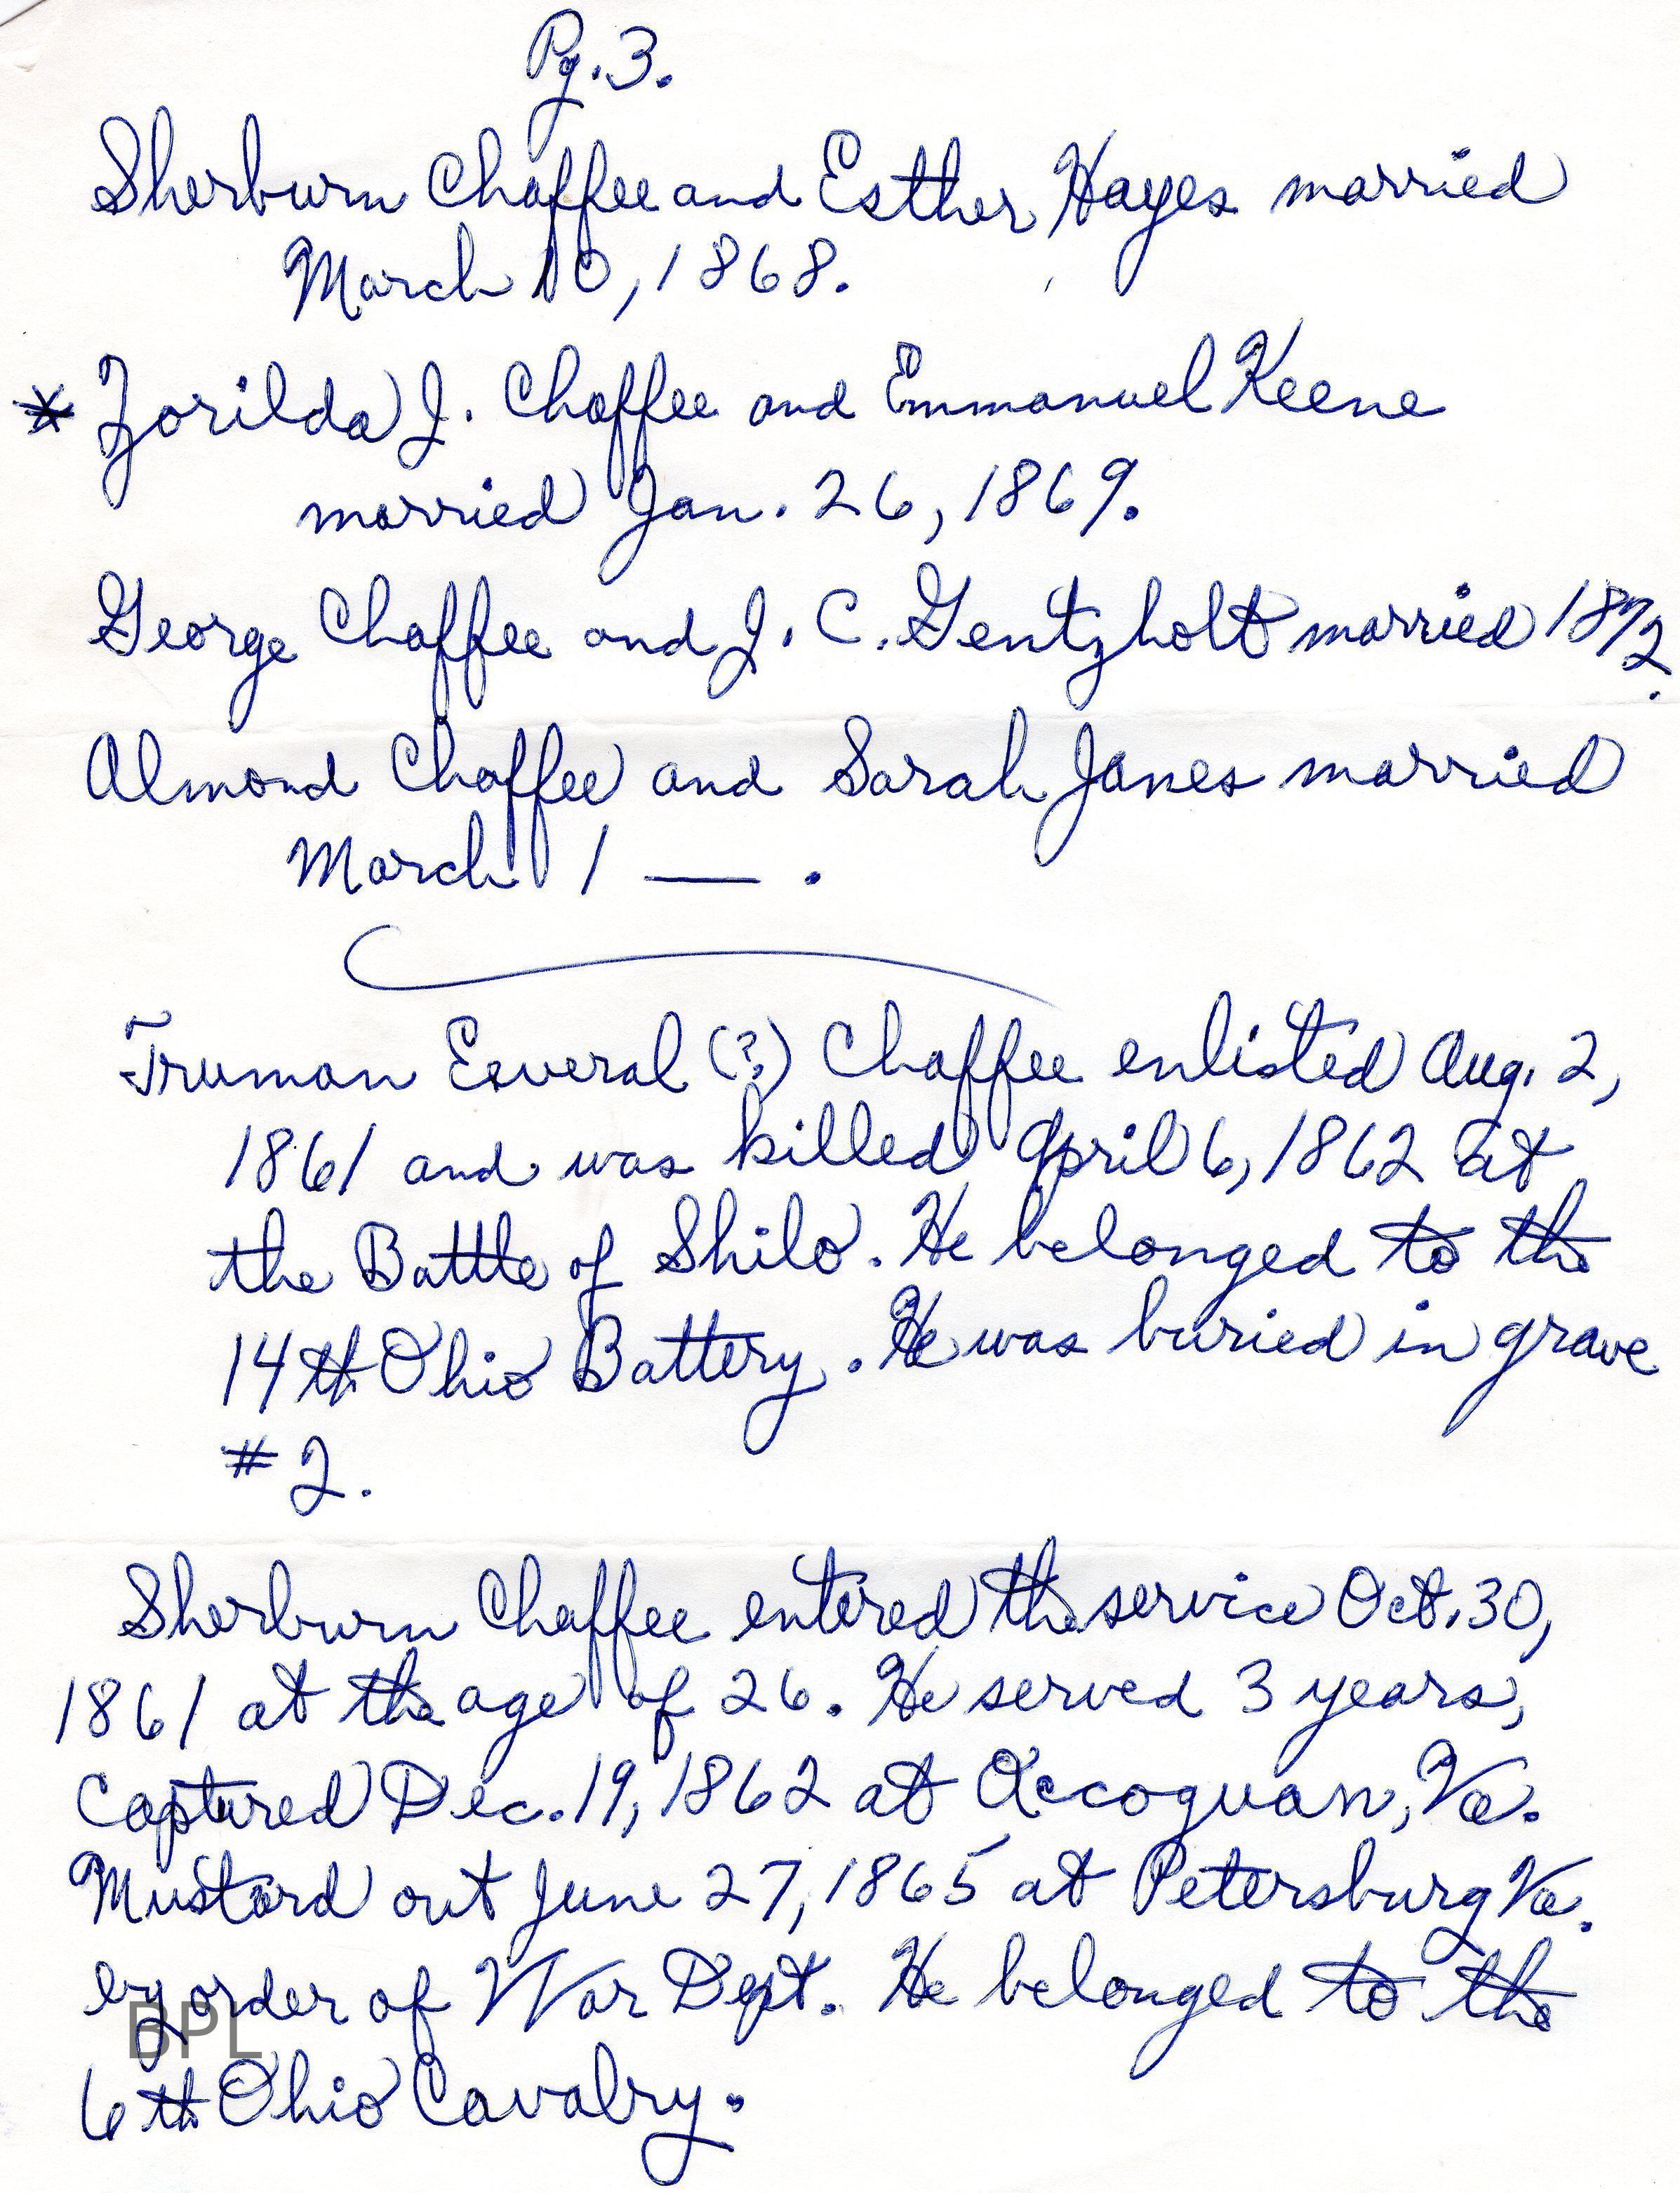 Pg. 3.
Sherburn Chaffee and Esther Hayes married
March 10, 1868.
* Zorilda J. Chaffee and Emmanuel Keene
married Jan. 26, 1869.
George Chaffee and J. C. Gentzholt married 1872.
Almond Chaffee and Sarah Janes married
March 1 — .
Truman Esveral (?) Chaffee enlisted Aug. 2,
1861 and was killed April 6, 1862 at
the Battle of Shilo. He belonged to the
14th Ohio Battery. He was buried in grave
# 2.
Sherburn Chaffee entered the service Oct. 30,
1861 at the age of 26. He served 3 years,
Captured Dec. 19, 1862 at Occoquan, Va.
Mustard out June 27, 1865 at Petersburg Va.
by order of War Dept. He belonged to the
BPL
6th Ohio Cavalry.